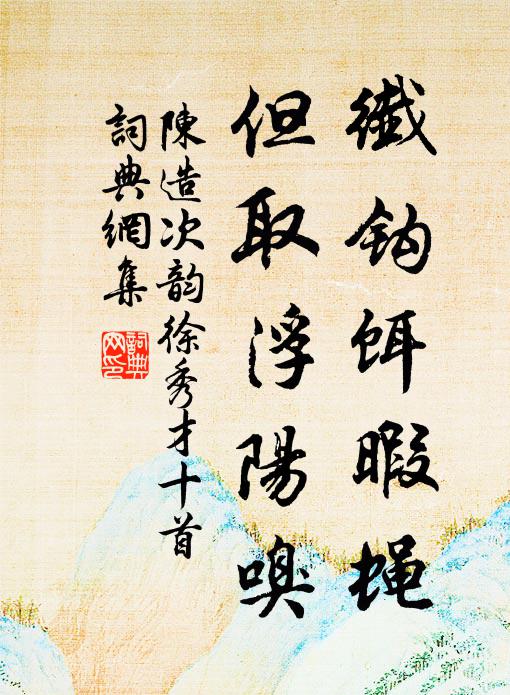 纖鈎餌暇蝇
但取浮陽嗅
陳造次韵徐秀才十首
詞典網集
詞典
网印